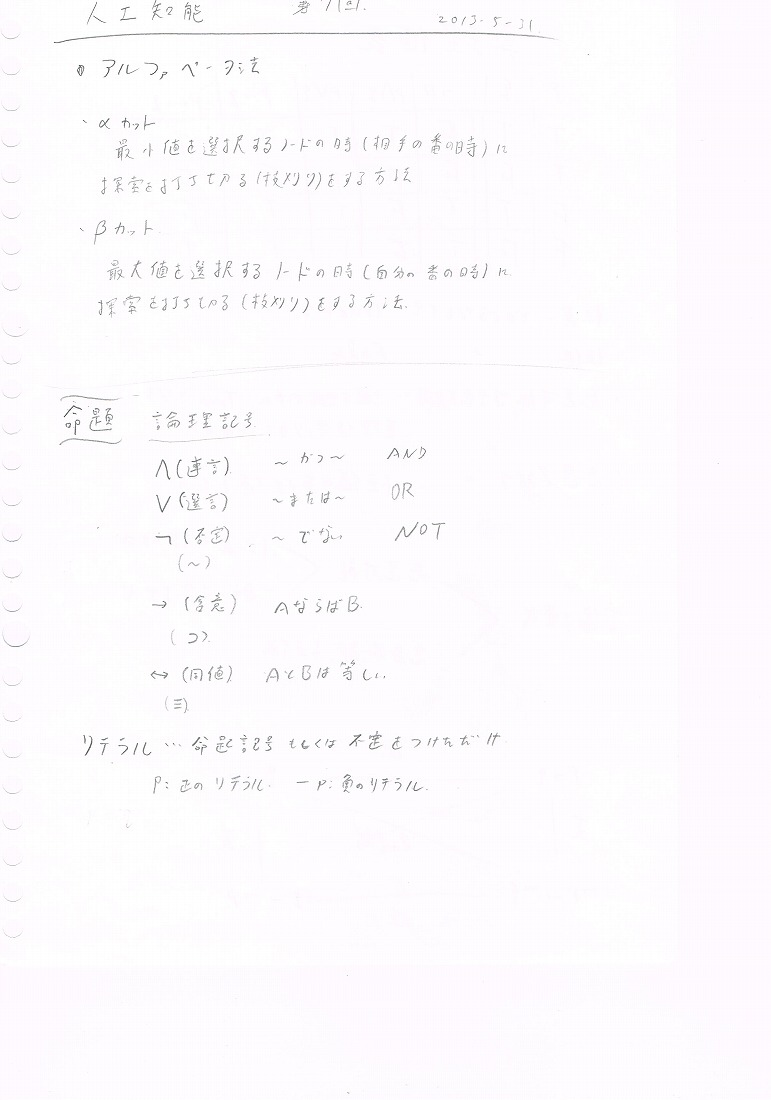 人工知能 第7回 2013-5-31
アルファベータ法
・αカット
最小値を選択するノードの時(相手の番の時)に
探索を打ち切る(枝刈り)をする方法
・βカット
最大値を選択するノードの時(自分の番の時)に
探索を打ち切る(枝刈り)をする方法.
命題 論理記号
∧(連言) ~かつ~ AND
∨(選言) ~または~ OR
¬(否定) ~でない NOT
(~)
→(含意) AならばB.
(⊃)
↔(同値) AとBは等しい.
(≡)
リテラル…命題記号もしくは不定をつけただけ
P:正のリテラル. ーP:負のリテラル.